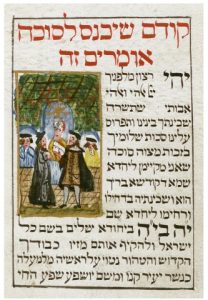 קודם שיכנס לסוכה
אומרים זה
יהי רצון מלפניך
אלהי ואלהי
אבותי שתשרה
שכינתך בינינו ותפרוס
עלינו סכת שלומיך
מצות סוכה
שאנו מקיימין ליחדא
שמא דקודשא בריך
הוא ושכינתיה בדחילו
ורחימו ליחדא שם
יה ביחודא שלים בשם כל
ישראל ולהקיף אותם מזיו כבודך
הקדוש והטהור נטוי על ראשיה מלמעלה
כנשר יעיר קנו ומשם יושפע שפע החי